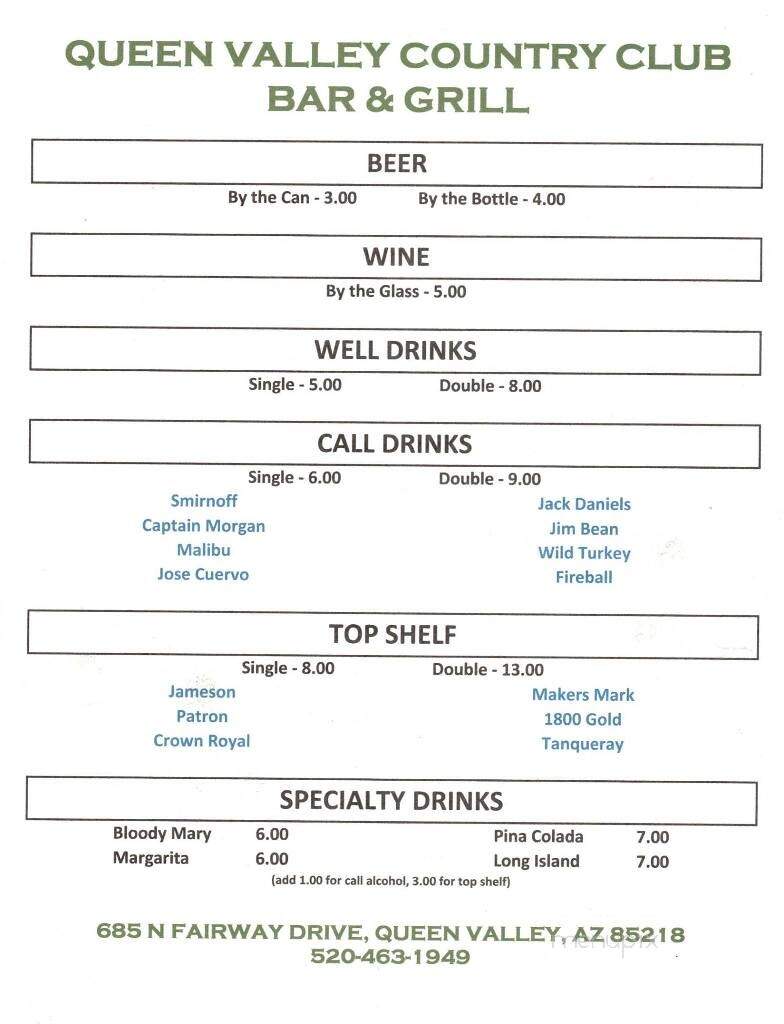 QUEEN VALLEY COUNTRY CLUB
BAR & GRILL
BEER
By the Can - 3.00 By the Bottle - 4.00
WINE
By the Glass - 5.00
WELL DRINKS
Single - 5.00 Double - 8.00
CALL DRINKS
Single - 6.00 Double - 9.00
Smirnoff Jack Daniels
Captain Morgan Jim Bean
Malibu Wild Turkey
Jose Cuervo Fireball
TOP SHELF
Single - 8.00 Double - 13.00
Jameson Makers Mark
Patron 1800 Gold
Crown Royal Tanqueray
SPECIALTY DRINKS
Bloody Mary 6.00 Pina Colada 7.00
Margarita 6.00 Long Island 7.00
(add 1.00 for call alcohol, 3.00 for top shelf)
685 N FAIRWAY DRIVE, QUEEN VALLEY, AZ 85218
menupix
520-463-1949